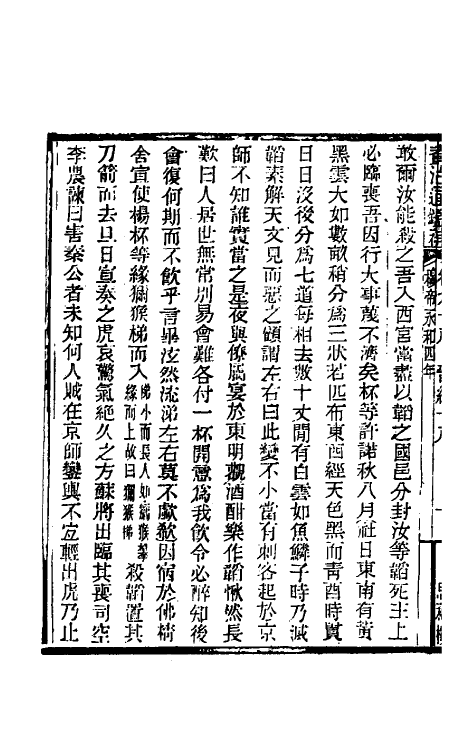 敢爾汝能殺之吾入西宮當盡以韜之國邑分封汝等韜死主上
必臨喪吾因行大事蔑不濟矣杯等許諾秋八月社日東南有黃
黑雲大如數畝稍分爲三狀若匹布東西經天色黑而青酉時貫
日日沒後分爲七道每相去數十丈閒有白雲如魚鱗子時乃滅
韜素解天文見而惡之顧謂左右曰此變不小當有刺客起於京
師不知誰實當之是夜與僚屬宴於東明觀酒酣樂作韜愀然長
歎曰人居世無常別易會難各付一杯開意爲我飲令必醉知後
會復何期而不飲乎言畢泫然流涕左右莫不歔欷因宿於佛精
舍宣使楊杯等緣獼猴梯而入 梯小而長人如獼猴攀緣而上故曰獼猴梯 殺韜置其
刀箭而去旦日宣奏之虎哀驚氣絕久之方蘇將出臨其喪司空
李農諫曰害秦公者未知何人賊在京師鑾輿不宜輕出虎乃止